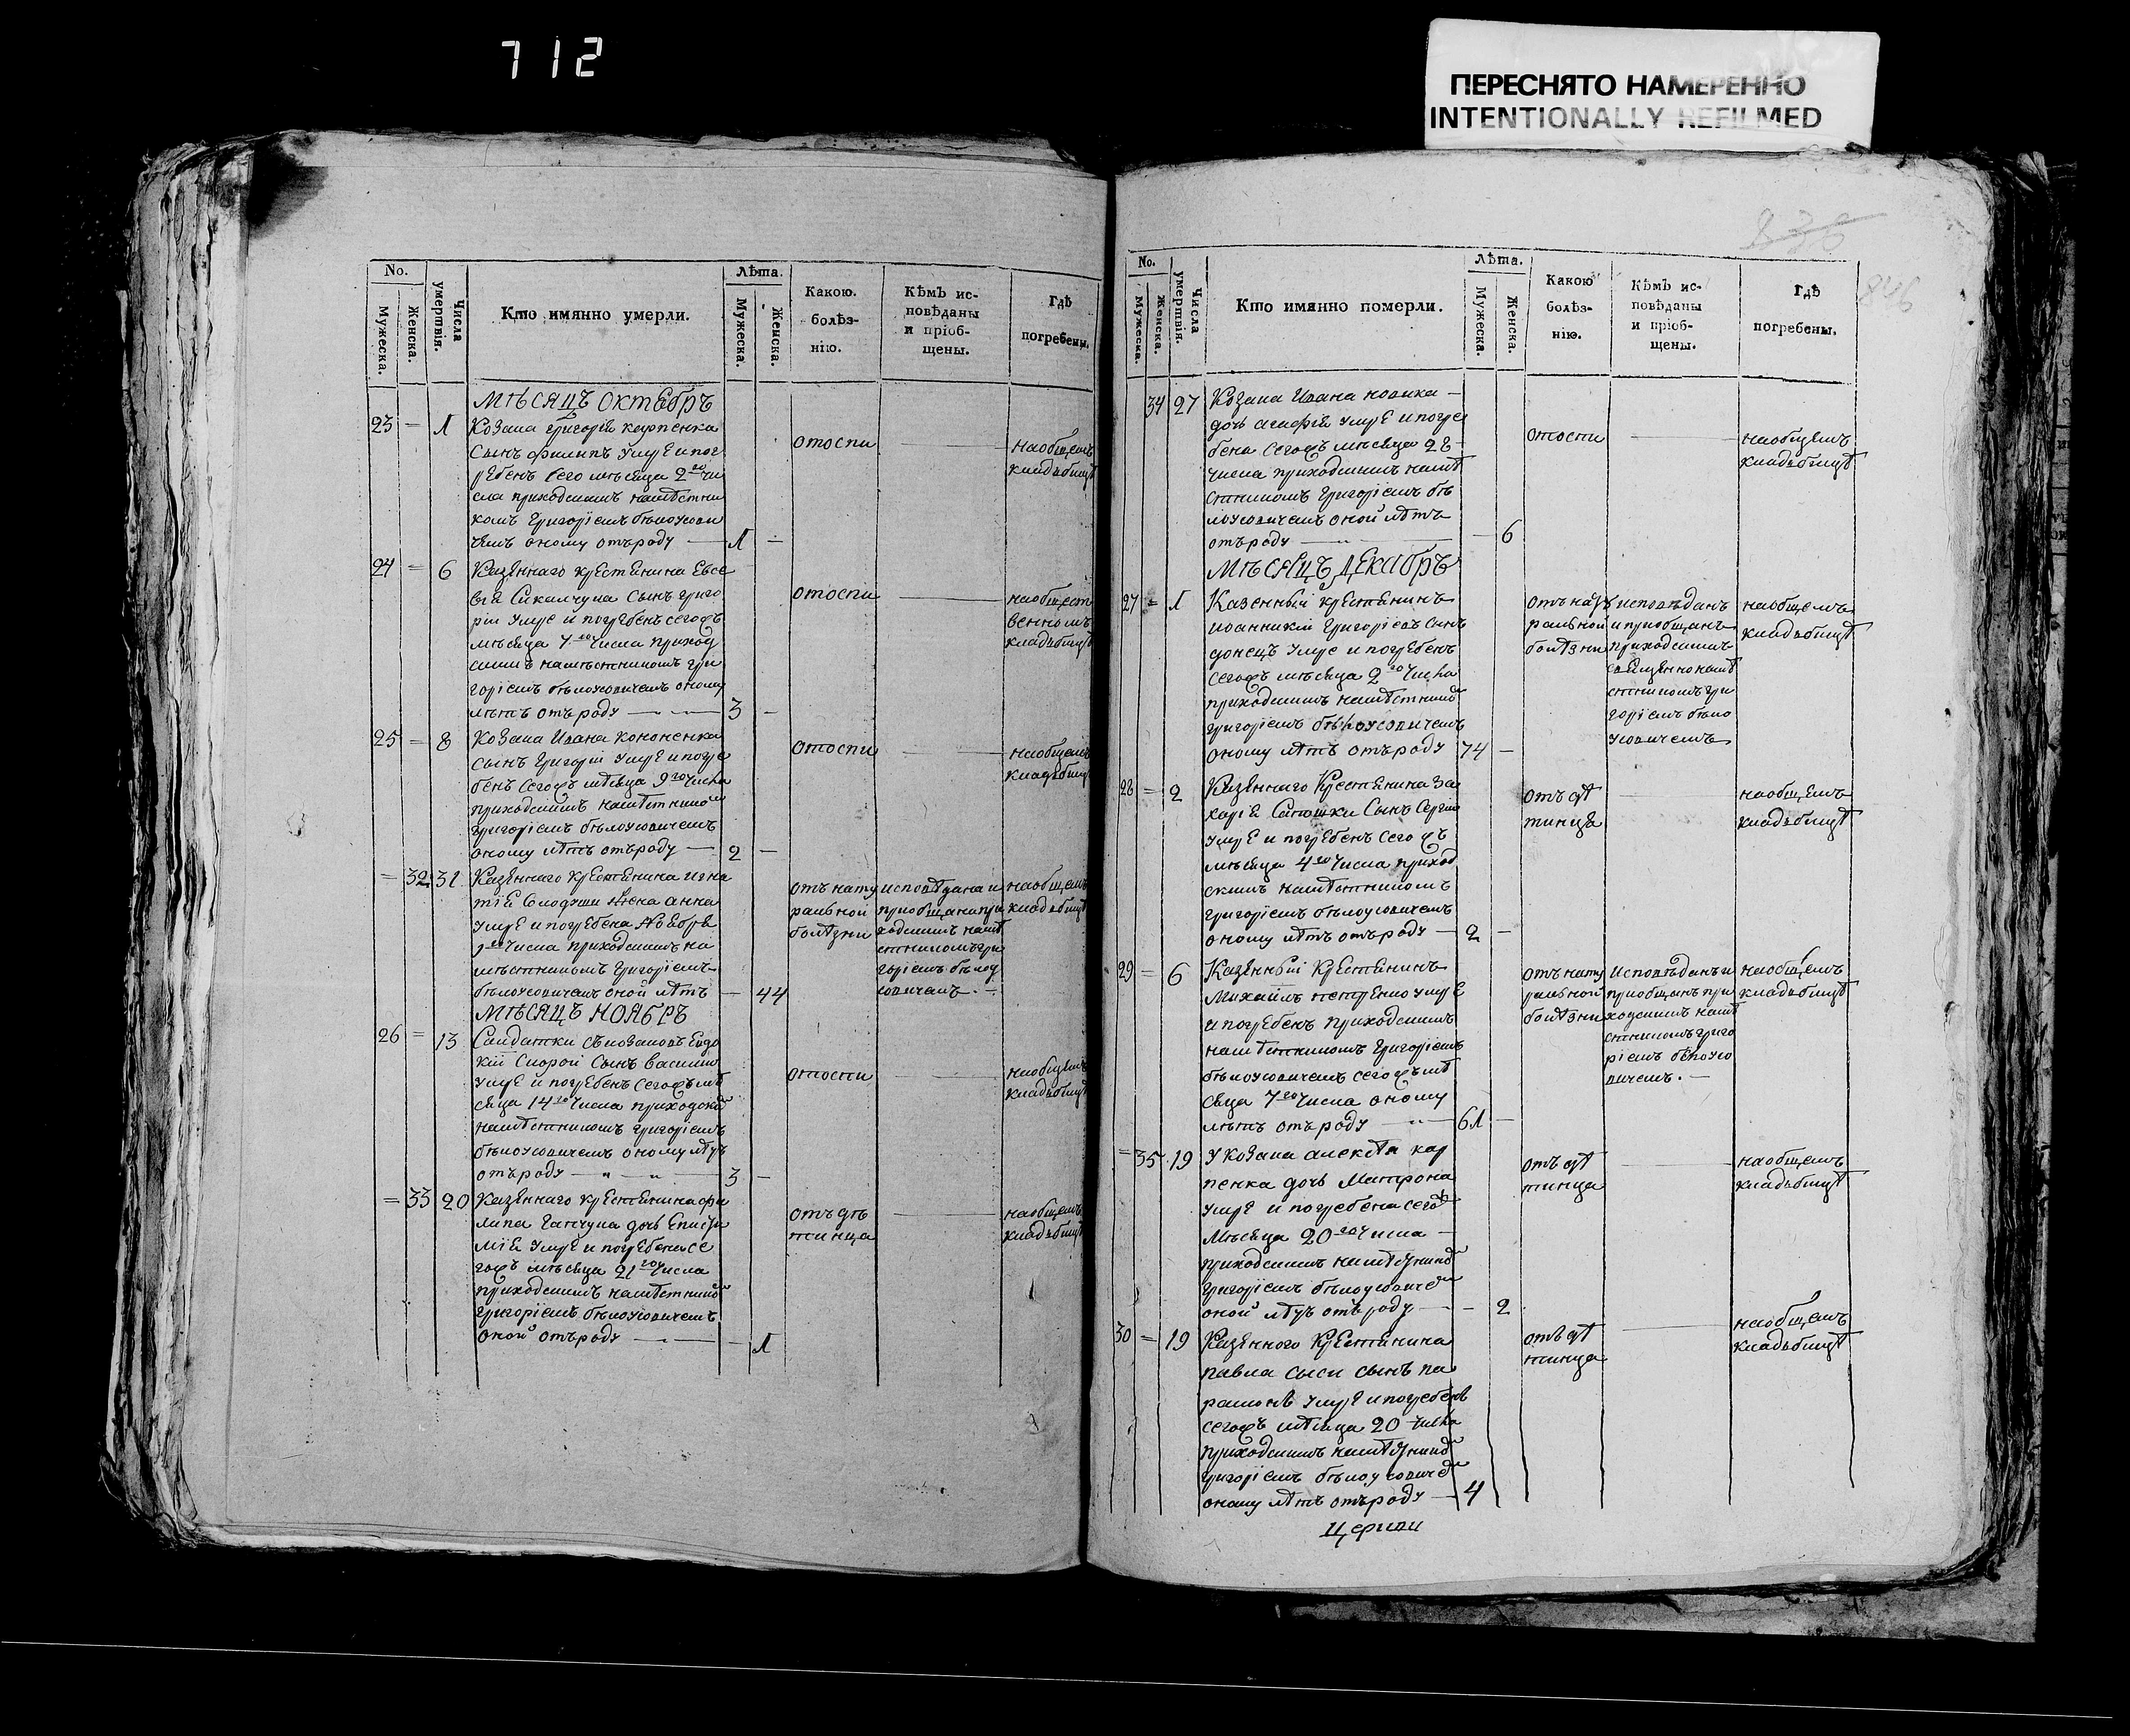 712
ПЕРЕСНЯТО НАМЕРЕННО
INTENTIONALLY REFILMED
836
846
No.
Мужеска.
Женска.
Числа умертвія.
Кто имянно умерли.
Лѣта.
Мужеска.
Женска.
Какою болѣз-
нію.
Кѣмъ ис-
повѣданы
и пріоб-
щены.
Гдѣ
погребены.
мѣсяцъ октебръ
23 = 1 Козака григорія карпенка
сынъ филипъ умре и пог
ребенъ сего мѣсяца 2го чи
сла приходскимъ намѣстни
комъ григоріемъ бѣлоусови
чемъ оному отъ роду — 1 —
отоспи
на общемъ
кладьбищѣ
24 = 6 Казеннаго крестенина Евсе
вія Сикалчука Сынъ григо
рій умре и погребенъ сегожъ
мѣсяца 7го числа приход
скимъ намѣстникомъ гри
горіемъ бѣлоусовичемъ оному
лѣтъ отъ роду — 3 —
отоспи
на общест
венномъ
кладьбищѣ
25 = 8 Козака Ивана кононенка
сынъ григорій умре и погре
бенъ сегожъ мѣсяца 9го числа
приходскимъ намѣстникомъ
григоріемъ бѣлоусовичемъ
оному лѣтъ отъ роду — 2 —
отоспи
на общемъ
кладьбищѣ
= 32 31 Казеннаго крестенина игна
тія жена анна
умре и погребена Ноебра
1го числа приходскимъ на
мѣстникомъ григоріемъ
бѣлоусовичемъ оной лѣтъ — 44
отъ нату
ральной
болѣзни
исповѣдана и
приобщана при
ходскимъ намѣ
стникомъ гри
горіемъ бѣлоу
совичемъ. —
на общемъ
кладьбищѣ
мѣсяцъ ноябръ
26 = 13 Салдатки съ козаковъ Евдо
кіи Скорой Сынъ василій
умре и погребенъ сегожъ мѣ
сяца 14го числа приходскимъ
намѣстникомъ григоріемъ
бѣлоусовичемъ оному лѣтъ
отъ роду — " — " — 3 —
отоспи
на общемъ
кладьбищѣ
= 33 20 Казеннаго крестенина фи
липа Гапчука дочь
умре и погребена се
гожъ мѣсяца 21го числа
приходскимъ намѣстникомъ
григоріемъ бѣлоусовичемъ
оной отъ роду — — 1
отъ дѣ
тинца
на общемъ
кладьбищѣ
No.
Мужеска.
Женска.
Числа умертвія.
Кто имянно померли.
Лѣта.
Мужеска.
Женска.
Какою
болѣз-
нію.
Кѣмъ ис-
повѣданы
и пріоб-
щены.
Гдѣ
погребены.
34 27 Козака Ивана новика —
дочь агафія умре и погре
бена сегожъ мѣсяца 28
числа приходскимъ намѣ
стникомъ григоріемъ бѣ
лоусовичемъ оной лѣтъ
отъ роду — " — — 6
отоспи
на общемъ
кладьбищѣ
мѣсяцъ декабръ
27 = 1 Казенный крестенинъ
иоанникій григоріевъ сынъ
донецъ умре и погребенъ
сегожъ мѣсяца 2го числа
приходскимъ намѣстникомъ
григоріемъ бѣлоусовичемъ
оному лѣтъ отъ роду 74 —
отъ нату
ральной
болѣзни
исповѣданъ
и приобщанъ
приходскимъ
священнонамѣ
стникомъ гри
горіемъ бѣло
усовичемъ
на общемъ
кладьбищѣ
28 = 2 Казеннаго крестенина За
харія Сынъ Сергій
умре и погребенъ сегожъ
мѣсяца 4го числа приход
скимъ намѣстникомъ
григоріемъ бѣлоусовичемъ
оному лѣтъ отъ роду — 2 —
отъ дѣ
тинца
на общемъ
кладьбищѣ
29 = 6 Казенный крестенинъ
Михаилъ петренко умре
и погребенъ приходскимъ
намѣстникомъ григоріемъ
бѣлоусовичемъ сегожъ мѣ
сяца 7го числа оному
лѣтъ отъ роду — " — 61 —
отъ нату
ральной
болѣзни
исповѣданъ и
приобщанъ при
ходскимъ намѣ
стникомъ григо
ріемъ бѣлоусо
вичемъ. —
на общемъ
кладьбищѣ
= 35 19 У козака алексѣя кар
пенка дочь Матрона
умре и погребена сегожъ
мѣсяца 20го числа —
приходскимъ намѣстникомъ
григоріемъ бѣлоусовичемъ
оной лѣтъ отъ роду — — 2
отъ дѣ
тинца
на общемъ
кладьбищѣ
30 = 19 Казенного крестенина
павла сынъ па
рамонъ умре и погребенъ
сегожъ мѣсяца 20 числа
приходскимъ намѣстникомъ
григоріемъ бѣлоусовичемъ
оному лѣтъ отъ роду — 4
отъ дѣ
тинца
на общемъ
кладьбищѣ
Церкви